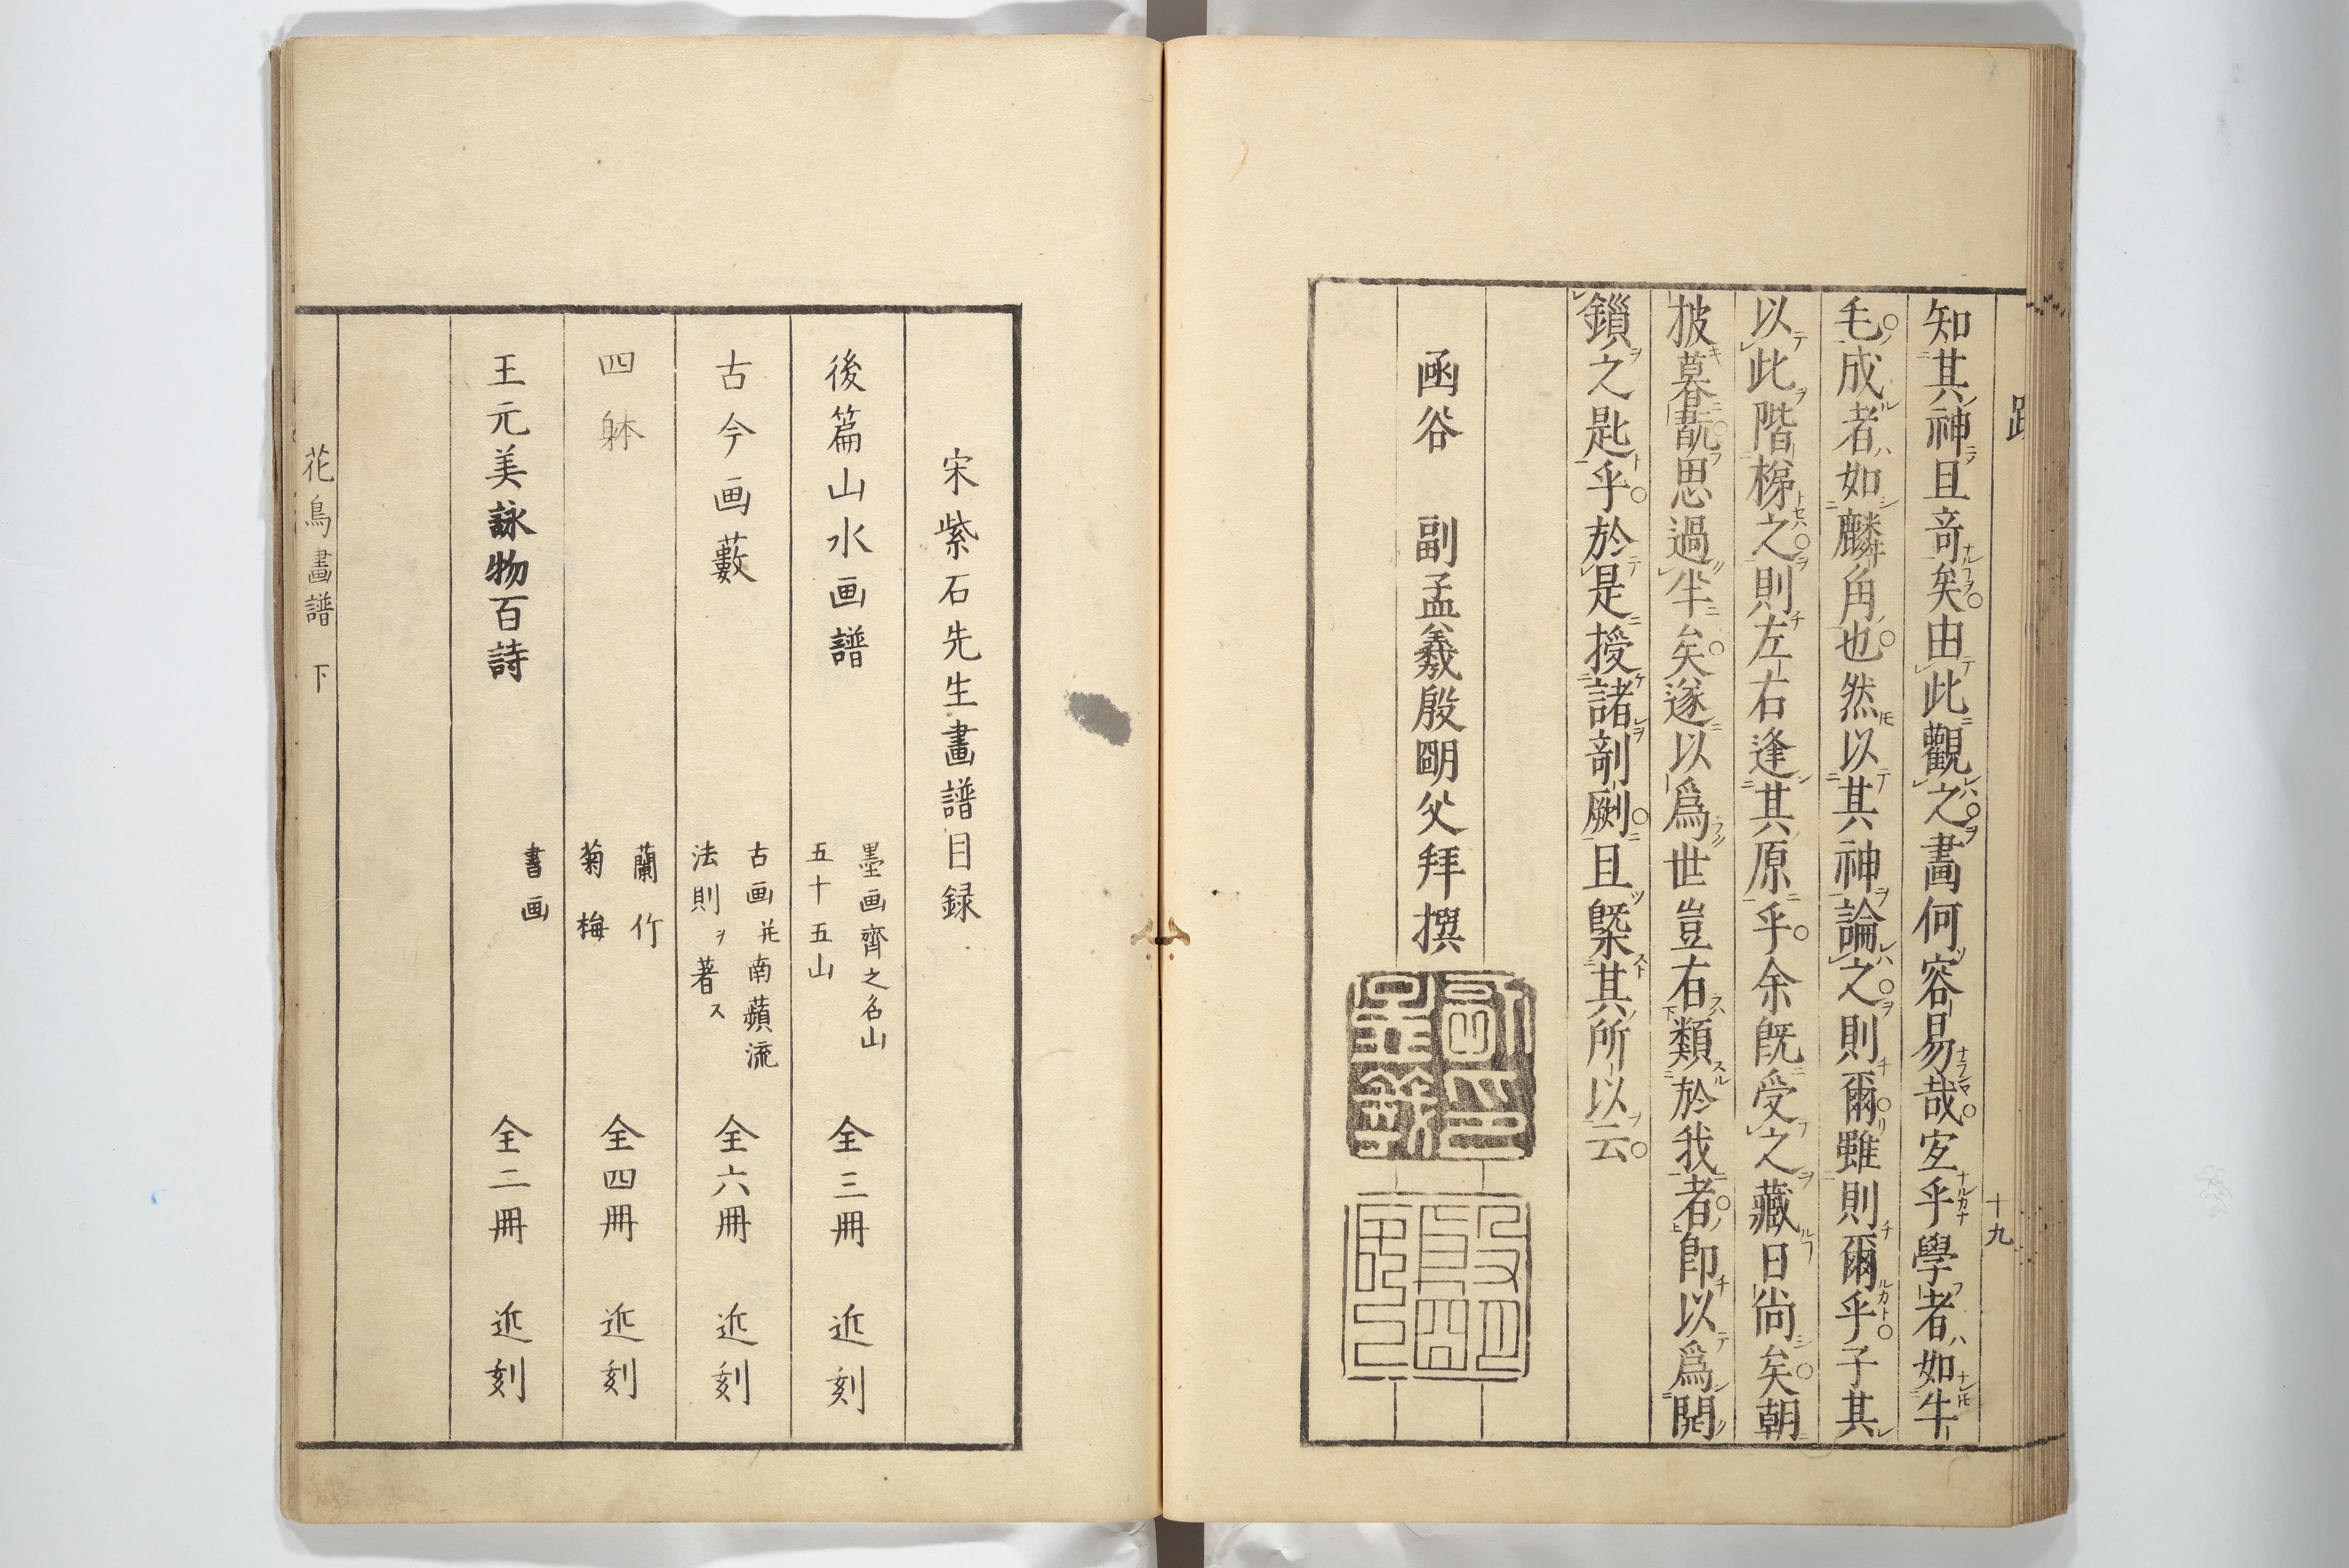 知其神且竒矣由此觀之畵何容易哉㝎乎學者如牛
毛成者如麟角也然以其神論之則爾雖則爾乎子其
以此階梯之則左右逢其原乎余既受之藏日尙矣朝
披暮翫思過半矣遂以爲世豈右類於我者卽以爲開
鎻之匙乎於是授諸剞劂且槩其所以云
函谷 副孟羲殷朙父拜撰
十九
宋紫石先生畫譜目録
後篇山水画譜 墨画齊之名山五十五山 全三冊 近刻
古今画藪 古画并南蘋流法則ヲ著ス 全六冊 近刻
四躰 蘭竹菊梅 全四冊 近刻
王元美詠物百詩 書画 全二冊 近刻
花鳥畫譜 下